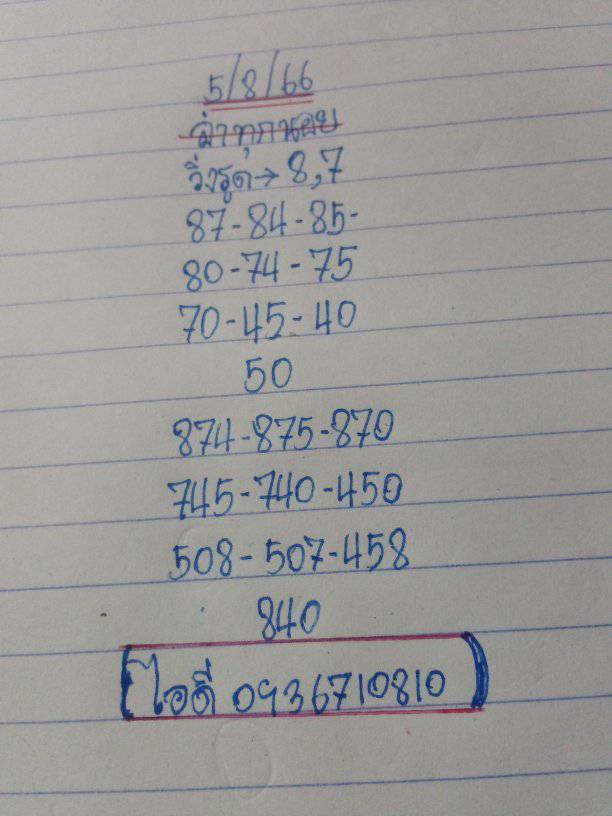 5/8/66
ฮ่าทุกนอย
วิ่งรูด→8,7
87-84-85-
80-74-75
70-45-40
50
874-875-870
745-740-450
508-507-458
840
ไอดี 0936710810